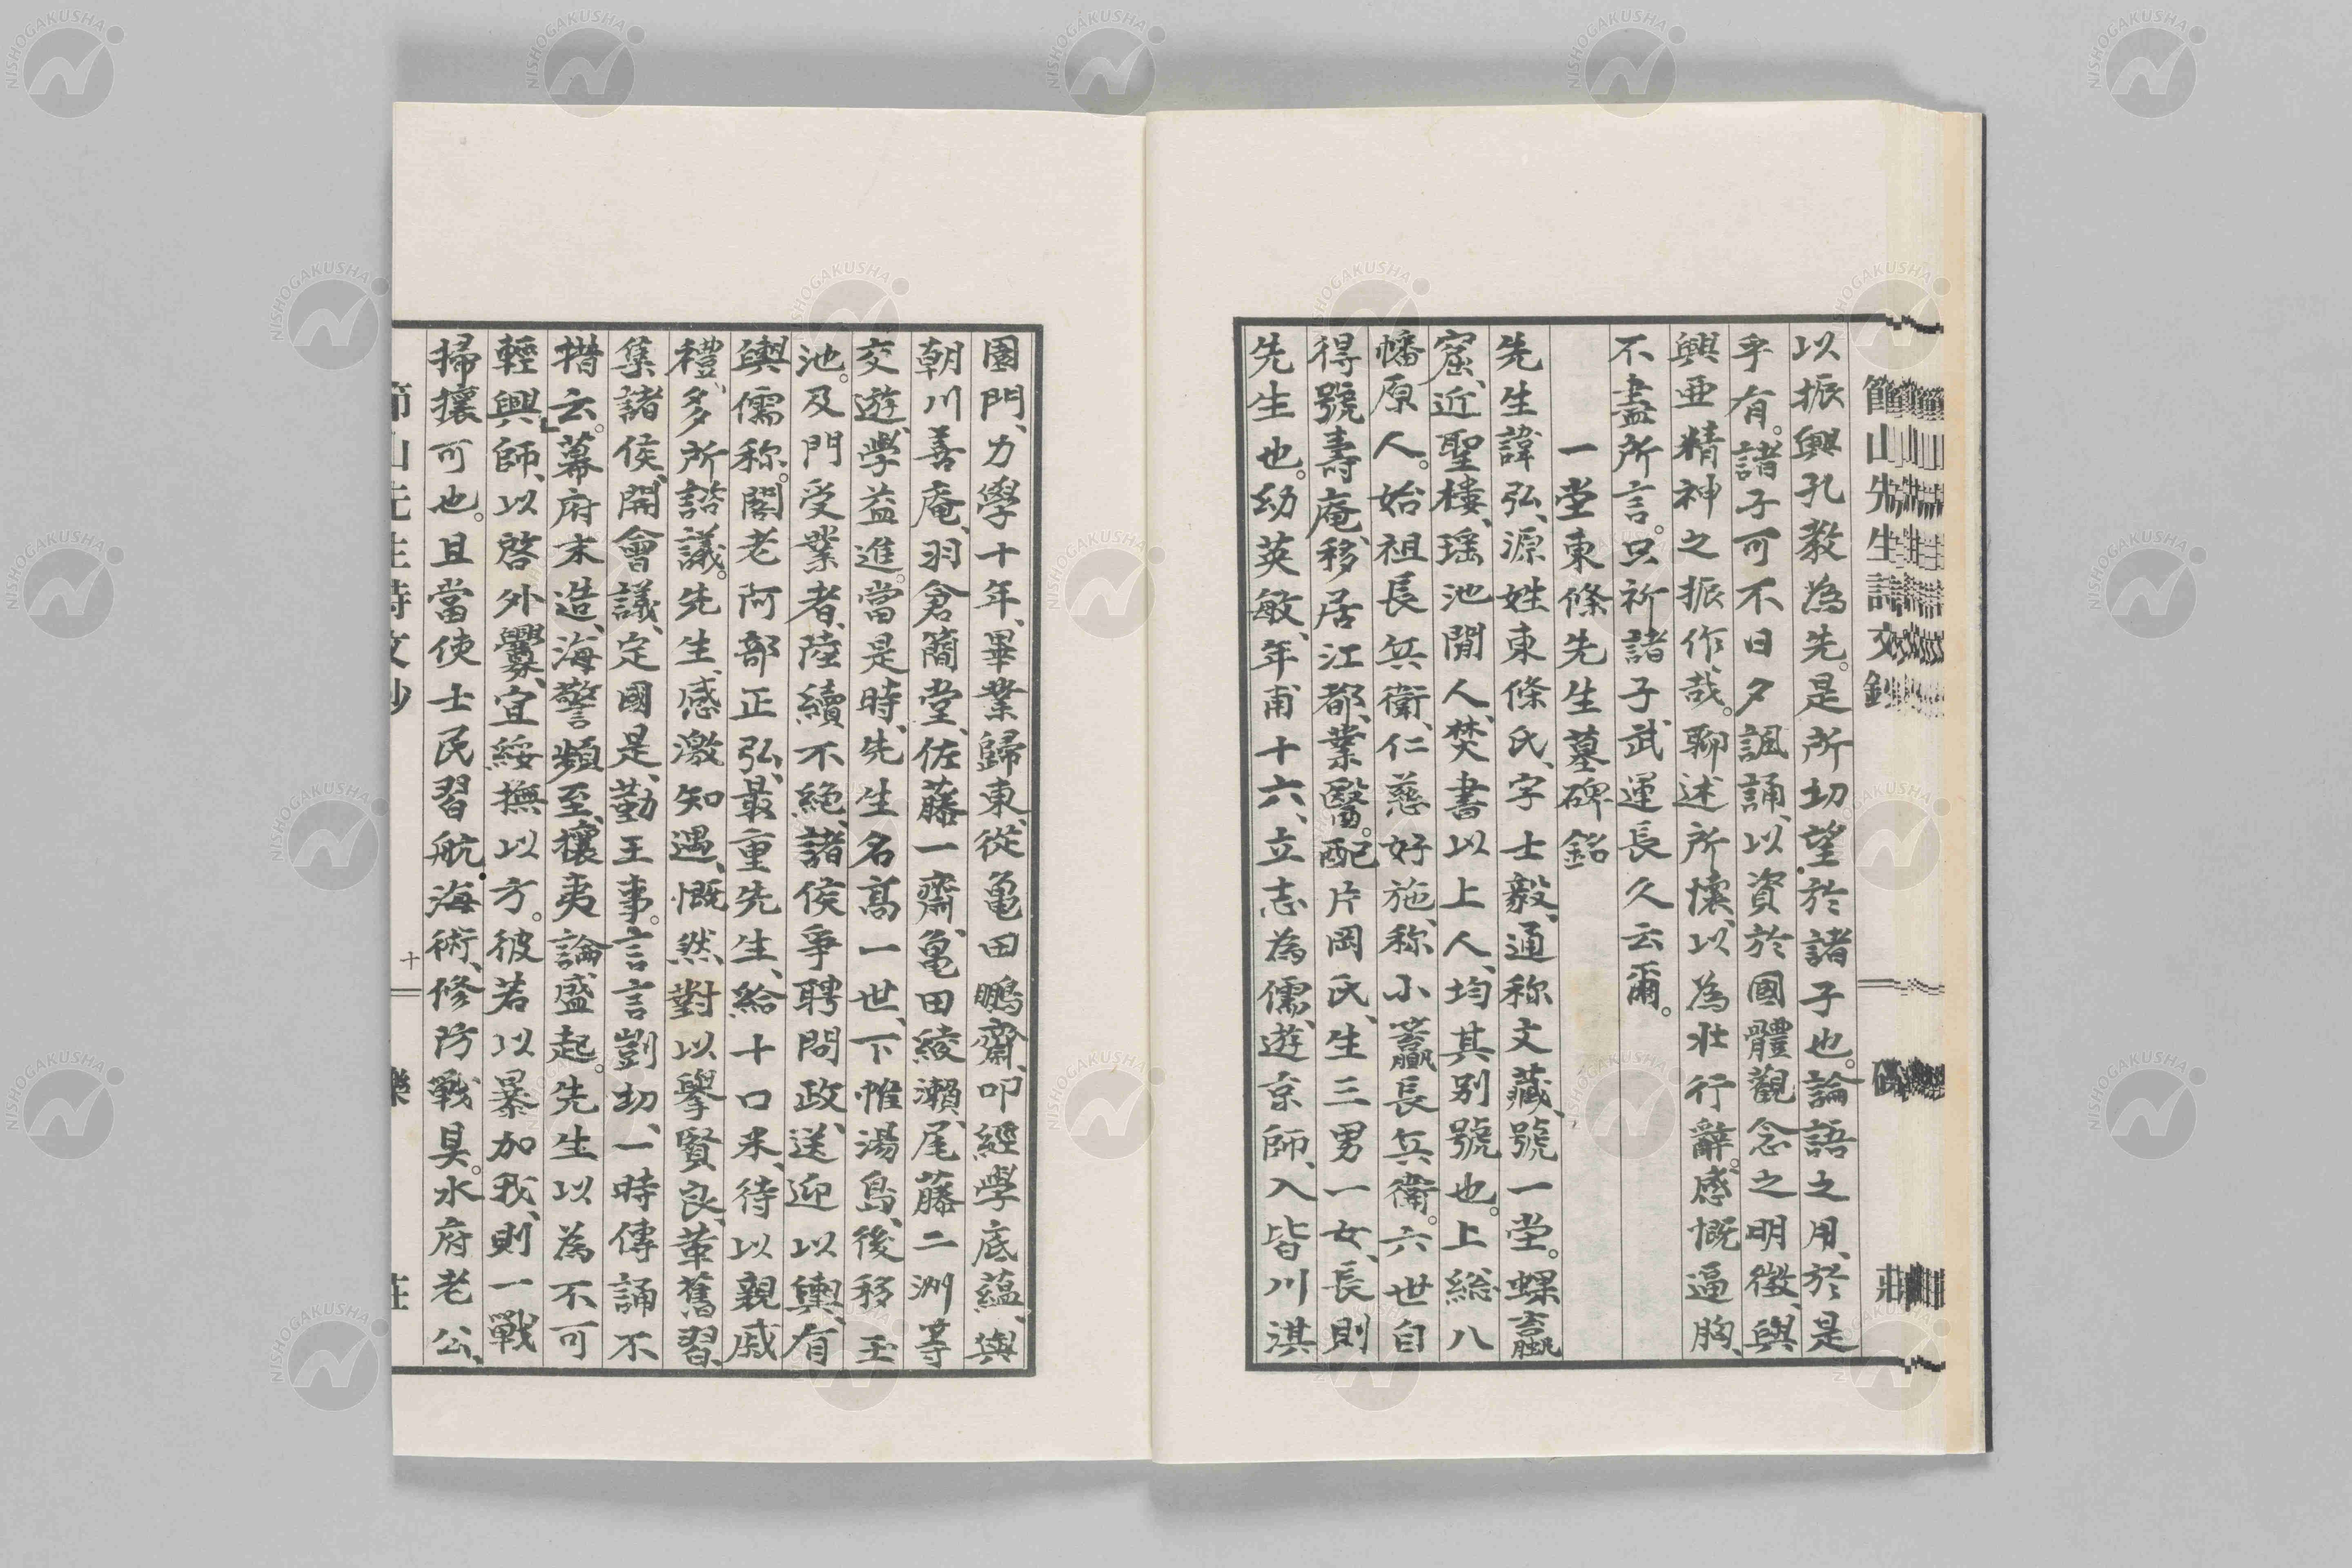 節山先生詩文鈔
以振興孔教為先。是所切望於諸子也。論語之用、於是
乎有。諸子可不日夕諷誦、以資於國體觀念之明徵、與
興亜精神之振作哉。聊述所懷、以為壮行辭。感慨逼胸、
不盡所言。只祈諸子武運長久云爾。
一堂東條先生墓碑銘
先生諱弘、源姓東條氏、字士毅、通称文藏、號一堂。螺蠃
窟、近聖樓、瑶池閒人、焚書以上人、均其别號也。上総八
幡原人。始祖長兵衛、仁慈好施、称小蠧長兵衞。六世自
得號壽庵、移居江都、業醫。配片岡氏、生三男一女、長則
先生也。幼英敏、年甫十六、立志為儒、遊京師、入皆川淇
園門、力學十年、畢業歸東、從亀田鵬齋、叩經學底蘊、與
朝川善庵、羽倉簡堂、佐藤一齋、亀田綾瀨、尾藤二洲等
交遊、學益進。當是時、先生名高一世、下帷湯島、後移玉
池。及門受業者、陸續不絶、諸侯爭聘問政、送迎以輿、有
輿儒称。閣老阿部正弘、最重先生、給十口米、待以親戚
禮、多所諮議。先生感激知遇、慨然對以擧賢良、革舊習、
集諸侯、開會議、定國是、勤王事。言言剴切、一時傳誦不
措云。幕府末造、海警頻至、攘夷論盛起。先生以為不可
輕興師、以啓外釁、宜綏撫以方。彼若以暴加我、則一戰
掃攘可也。且當使士民習航海術、修防戰具。水府老公、
節山先生詩文鈔
十